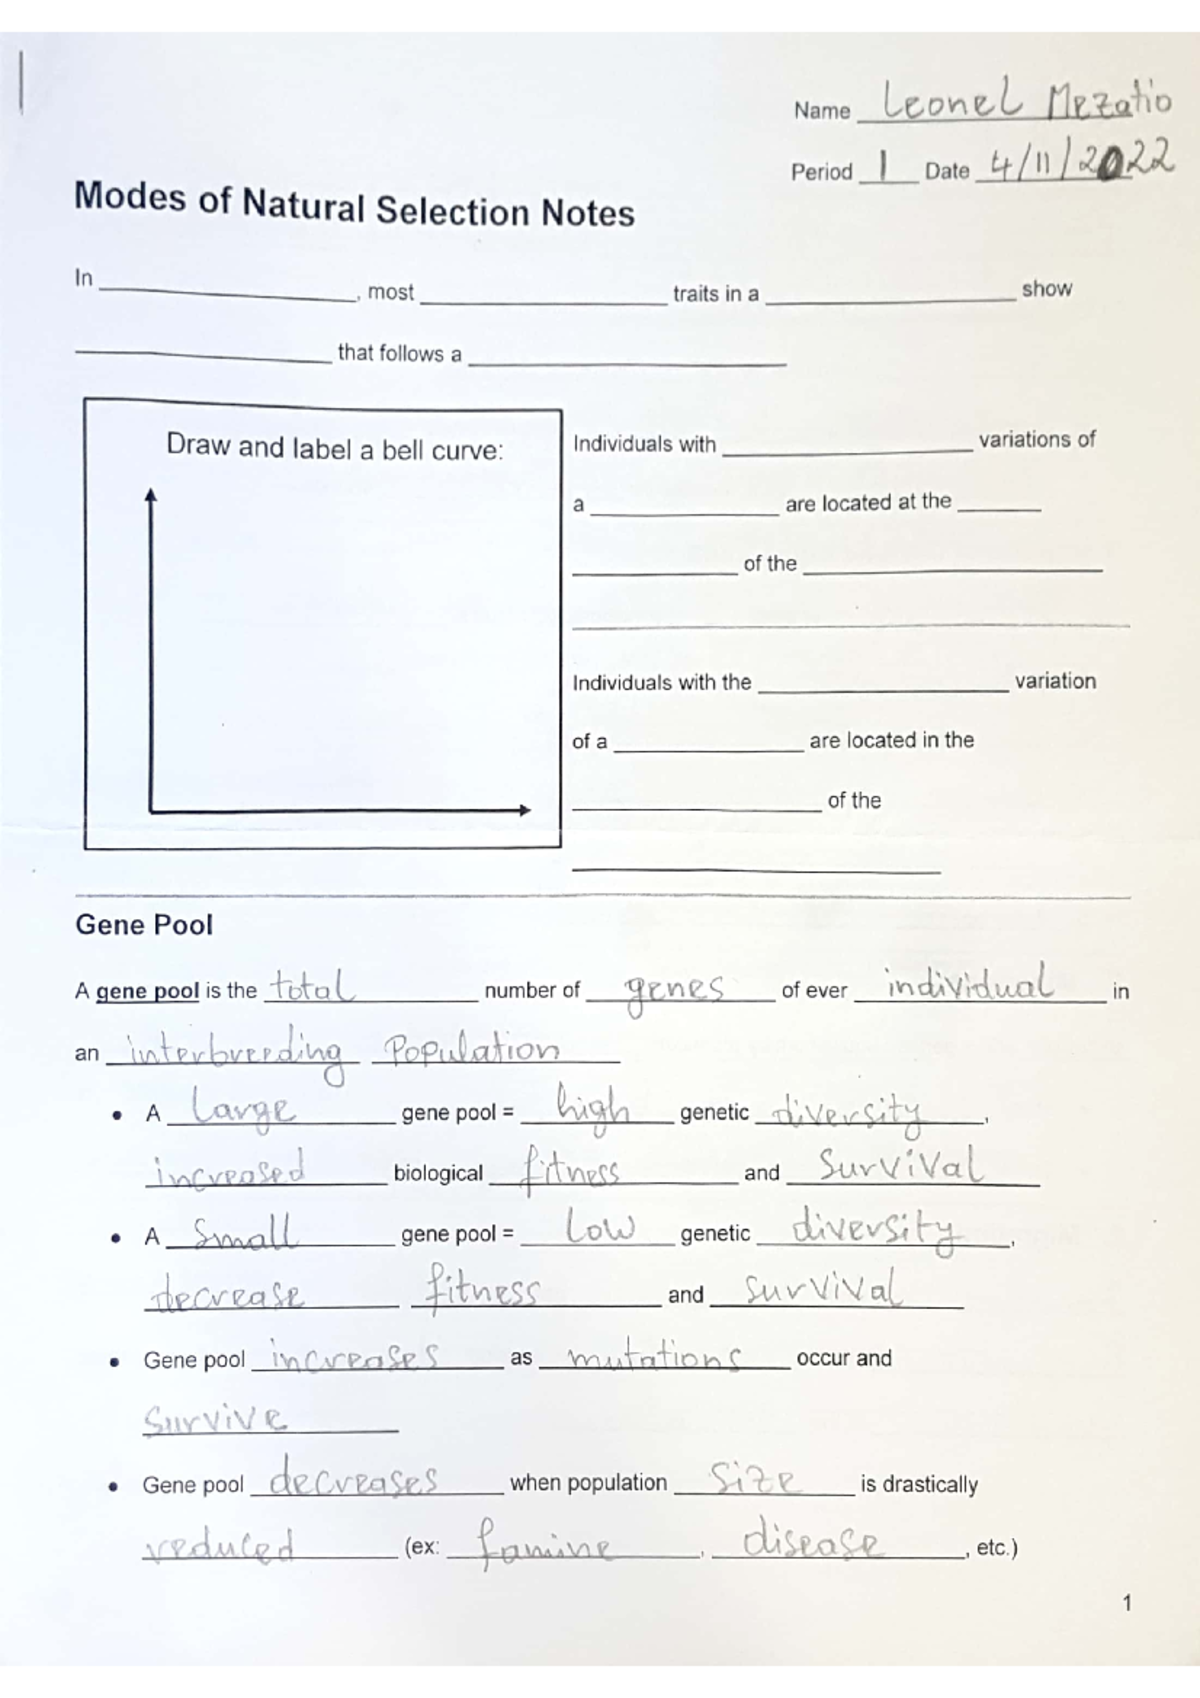 Name Leonel Mezatio
Period 1 Date 4/11/2022
Modes of Natural Selection Notes
In ____, most ____ traits in a ____ show
____ that follows a ____
Draw and label a bell curve:
Individuals with ____ variations of
a ____ are located at the ____
____ of the ____
Individuals with the ____ variation
of a ____ are located in the
____ of the
____
Gene Pool
A gene pool is the total number of genes of ever individual in
an interbreeding Population
• A large gene pool = high genetic diversity,
increased biological fitness and survival
• A Small gene pool = low genetic diversity,
decrease fitness and survival
• Gene pool increases as mutations occur and
Survive
• Gene pool decreases when population size is drastically
reduced (ex: famine, disease, etc.)
1